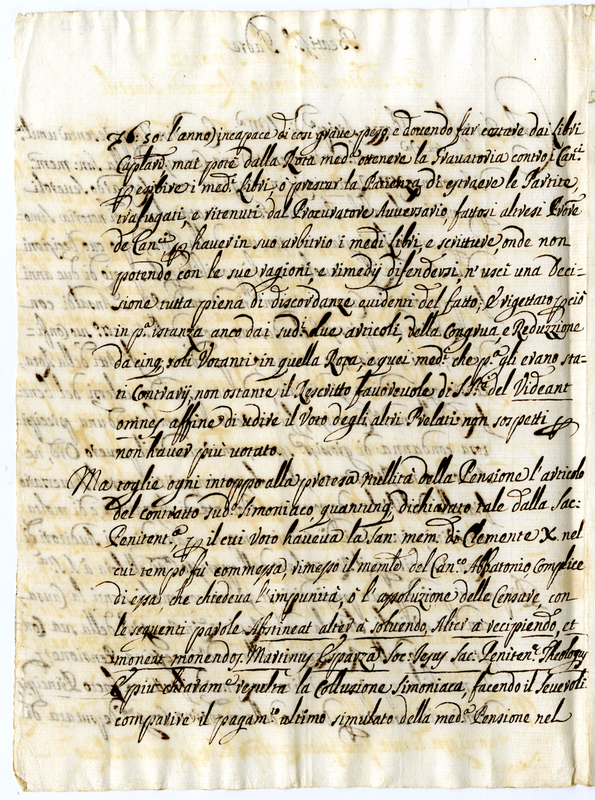 76: 50: l'anno) incapace di così grave peso, e dovendo far costare dai Libri
Capitari, mai potè dalla Rota med.ª ottenere la Travatoria contro i Can.ci
p esibire i med.i Libri, ò prestar la Patienza di estraere le Partite,
trafugati, e ritenuti dal Procuratore Avversario, fattosi altresì
de Can.ci p haver in suo arbitrio i med.i libri, e scritture, onde non
potendo con le sue ragioni, e rimedij difendersi n'uscì una Deci-
sione tutta piena di discordanze evidenti del fatto, e rigettato p ciò
in p.ª istanza anco dai sud.i due articoli, della Congrua, e Reduzzione
da cinq soli Votanti in quella Rota, e quei med.i che p.ª gli erano sta-
ti Contrarij, non ostante il Rescritto favorevole di S. S.tà del Videant
omnes affine di udire il Voto degli altri Prelati non sospetti p
non haver più votato.
Ma toglie ogni intoppo alla pretesa Nullità della Pensione l'articolo
del contratto sud.º Simoniaco quantunq dichiarato tale dalla Sac:
Penitent.ª p il cui Voto haveva la San: mem: di Clemente X. nel
cui tempo fù commessa, rimesso il mem.le del Can.co Abbatonio Complice
di essa che chiedeva l'impunità, ò l'assoluzione delle Censure con
le seguenti parole Abstineat alter à solvendo, Alter à recipiendo, et
moneat monendos. Martinus Esparza Soc: Jesu Sac: Peniten: Theologus
E più chiaram.te repulta la Collusione Simoniaca, facendo il Severoli
comparire il pagam.to ultimo simulato della med.ª Pensione nel